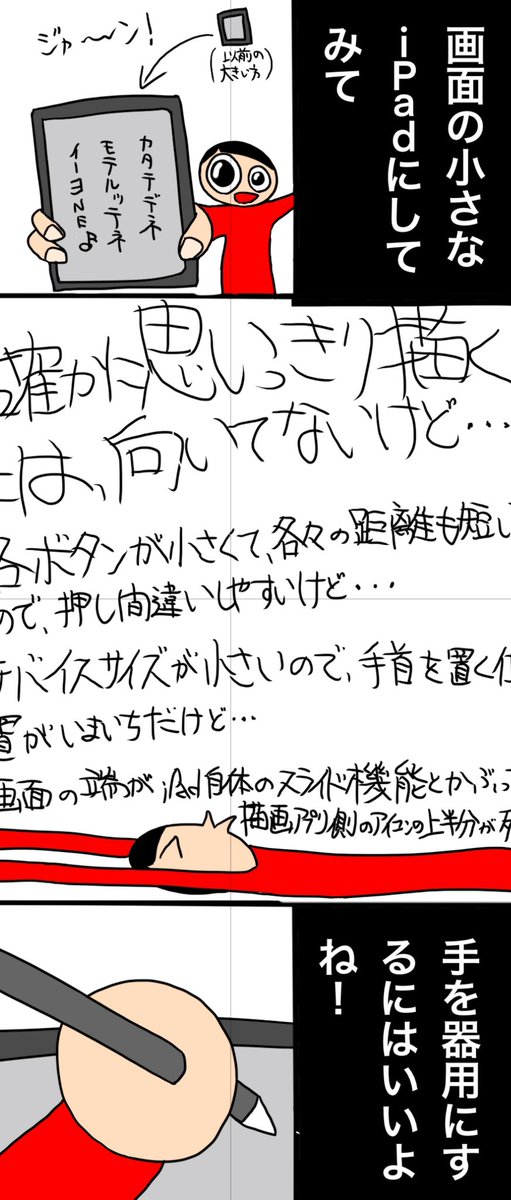 画面の小さな
iPadにして
みて
ジャ〜〜ン!
(以前の
大きい方)
カタテデネ
モテルッテネ
イーヨNE♪
確かに思いっきり描く
には、向いてないけど…
各ボタンが小さくて、各々の距離も短い
ので、押し間違いしやすいけど・・・
デバイスサイズが小さいので、手首を置く位
置がいまいちだけど…
画面の端っこが iPad自体のスライド機能とかぶっ
描画アプリ側のアイコンの上半分が
手を器用にす
るにはいいよ
ね!